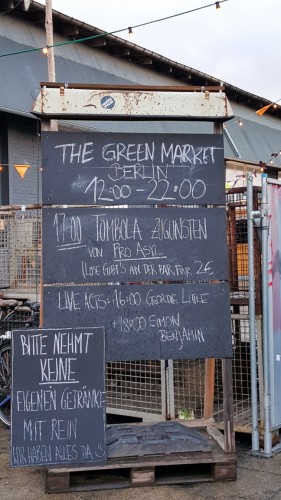 THE GREEN MARKET
BERLIN
12:00 - 22:00
17:00 TOMBOLA ZUGUNSTEN
VON PRO ASYL
(LOSE GIBT'S AN DER BAR FÜR 2€
LIVE ACTS: 16:00 GEORDIE LITTLE
+ 18:00 SIMON
BENJAMIN
BITTE NEHMT
KEINE
EIGENEN GETRÄNKE
MIT REIN
WIR HABEN ALLES DA